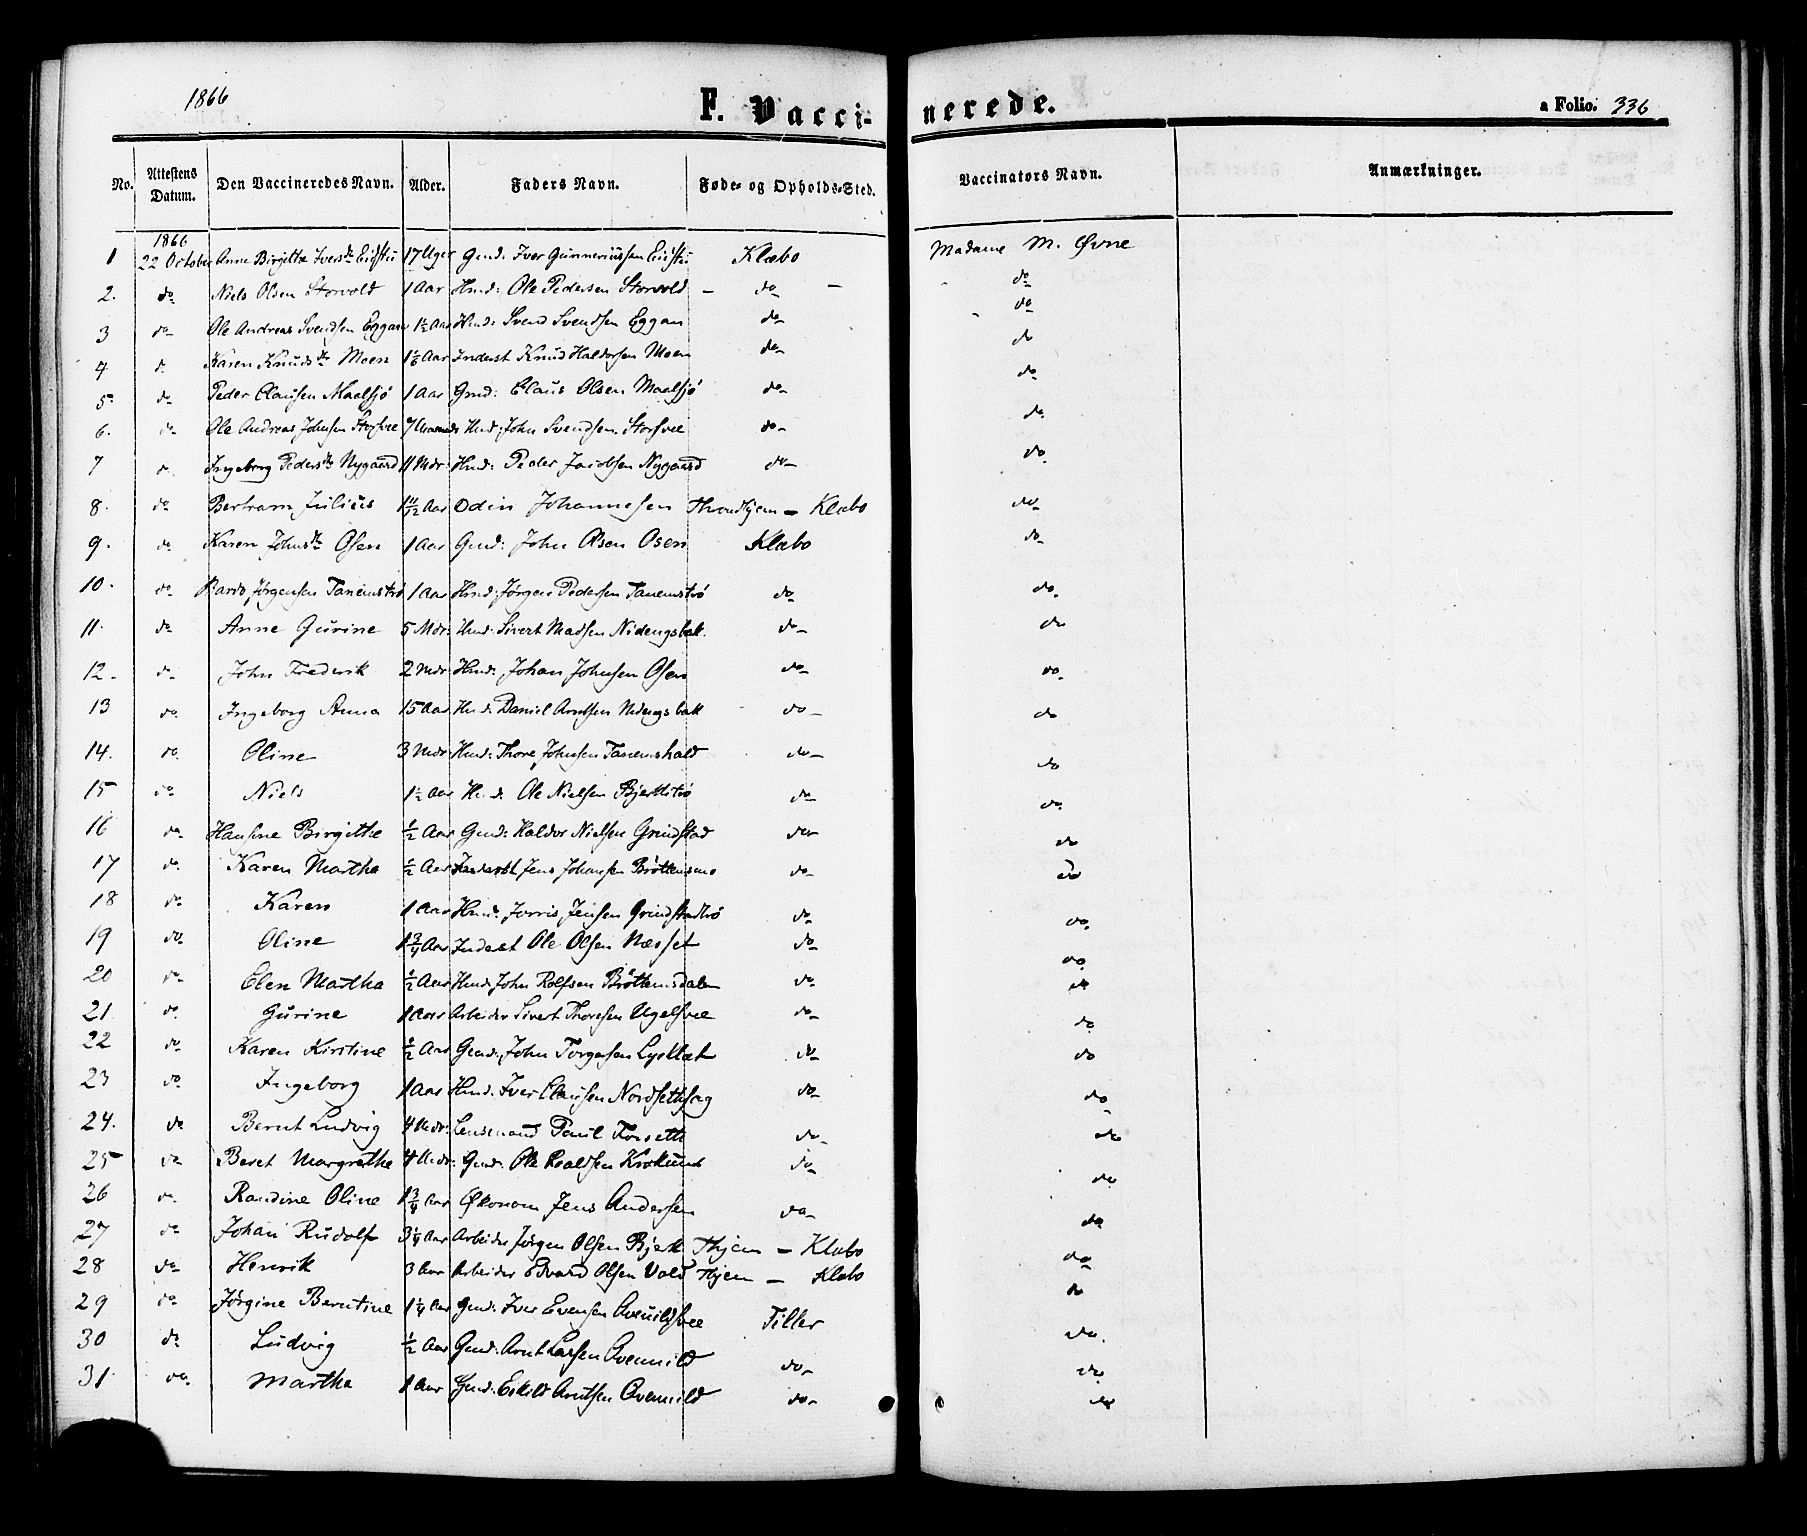 1866
F. Vaccinerede.
a Folio. 336
No. Attestens Datum. Den Vaccineredes Navn. Alder. Faders Navn. Føde- og Opholds-Sted. Vaccinators Navn. Anmærkninger.
1866
1 22 October Anne Birgitha Iversdr 17 Uger Gmd: Iver Gunneriussen Klæbo Madame M. Øvne
2. do Niels Olsen Storvold 1 Aar Hmd: Ole Pedersen Storvold - do - do
3 do Ole Andreas Svendsen Eggan 1½ Aar Hmd: Svend Svendsen Eggan do do
4 do Karen Knudsdr Moen Aar Inderst Knud Haldorsen Moen do do
5 do Peder Clausen Maalsjø 1 Aar Gmd: Claus Olsen Maalsjø do do
6. do Ole Andreas Johnsen Storsvee 7 Hmd: John Svendsen Storsvee do do
7 do Ingeborg Pedersdr Nygaard 11 Mdr: Hmd: Peder Nygaard do do
8. do Bertram Julius 1 11/12 Aar Odin Johannesen Throndhjem - Klæbo do
9. do Karen Johnsdr Osen 1 Aar Gmd: John Olsen Osen Klæbo do
10. do Bardo Jørgensen Tanemstrø 1 Aar Hmd: Jørgen Pedersen Tanemstrø do do
11. do Anne Gurine 5 Mdr: Hmd: Sivert Madsen Nidengsbak. do do
12. do John Frederik 2 Mdr Hmd: Johan Johnsen Osen do do
13 do Ingeborg Anna 15 Aar Hmd: Daniel Arntsen Nidengsbak do do
14. do Oline 3 Mdr: Hmd: Thore Johnsen Tanemshald do do
15 do Niels 1½ Aar Hmd: Ole Nielsen do do
16 do Hansine Birgithe ½ Aar Gmd: Haldor Nielsen Grindstad do do
17 do Karen Martha ½ Aar Inderst Jens Johansen Brøttemsmo do do
18 do Karen 1 Aar Hmd: Jensen Grindstadtrø do do
19 do Oline 1¾ Aar Inderst Ole Olsen Næsset do do
20 do Elen Martha ½ Aar Hmd: John Rolfsen Brøttemsdalen do do
21 do Gurine 1 Aar Arbeider Sivert Thoresen Ugelsvee do do
22 do Karen Kirstine ½ Aar Gmd: John Torgersen Lysklæt do do
23 do Ingeborg 1 Aar Hmd: Iver Clausen Nordsethsag do do
24. do Bernt Ludvig 4 Mdr: Lensmand Paul Forseth do do
25 do Beret Margrethe 4 Mdr: Gmd: Ole do do
26 do Randine Oline 1¾ Aar Økonom Jens Andersen do do
27 do Johan Rudolf 3¼ Aar Arbeider Jørgen Olsen Bjerk Thjem - Klæbo do
28 do Henrik 3 Aar Arbeider Edvard Olsen Vold Thjem - Klæbo do
29 do Jørgine Berntine 1¼ Aar Gmd: Iver Evensen Qvenildsvee Tiller do
30 do Ludvig ½ Aar Gmd: Arnt Larsen Qvenild do do
31 do Martha 1 Aar Gmd: Eskild Arntsen Qvenild do do
do